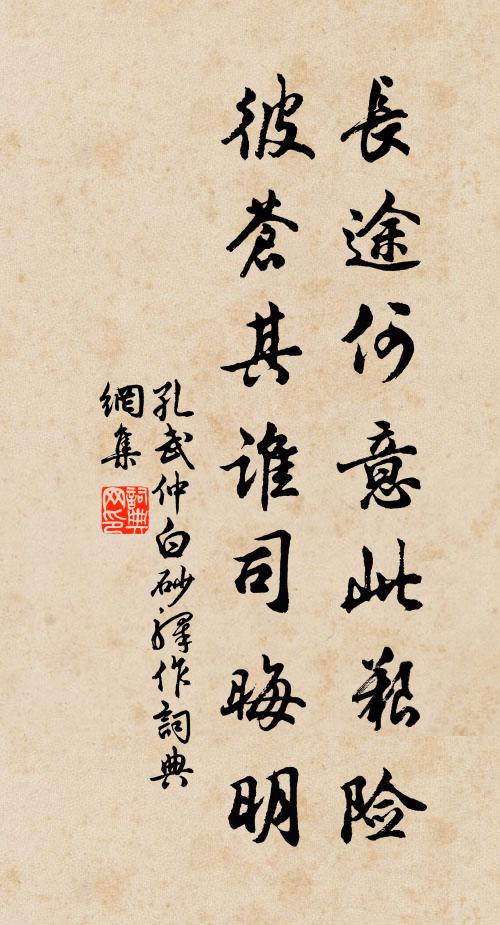 長途何意此艱险
彼蒼其誰司晦明
孔武仲白砂驛作詞典
網集
詞典
网印